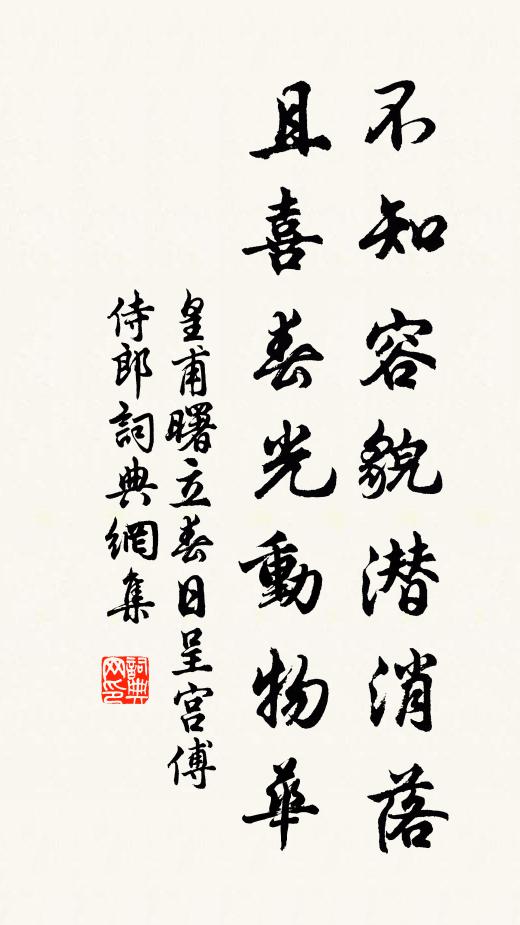 不知容貌潜消落
且喜春光動物華
皇甫曙立春日呈宫傅
侍郎詞典網集
詞典网印